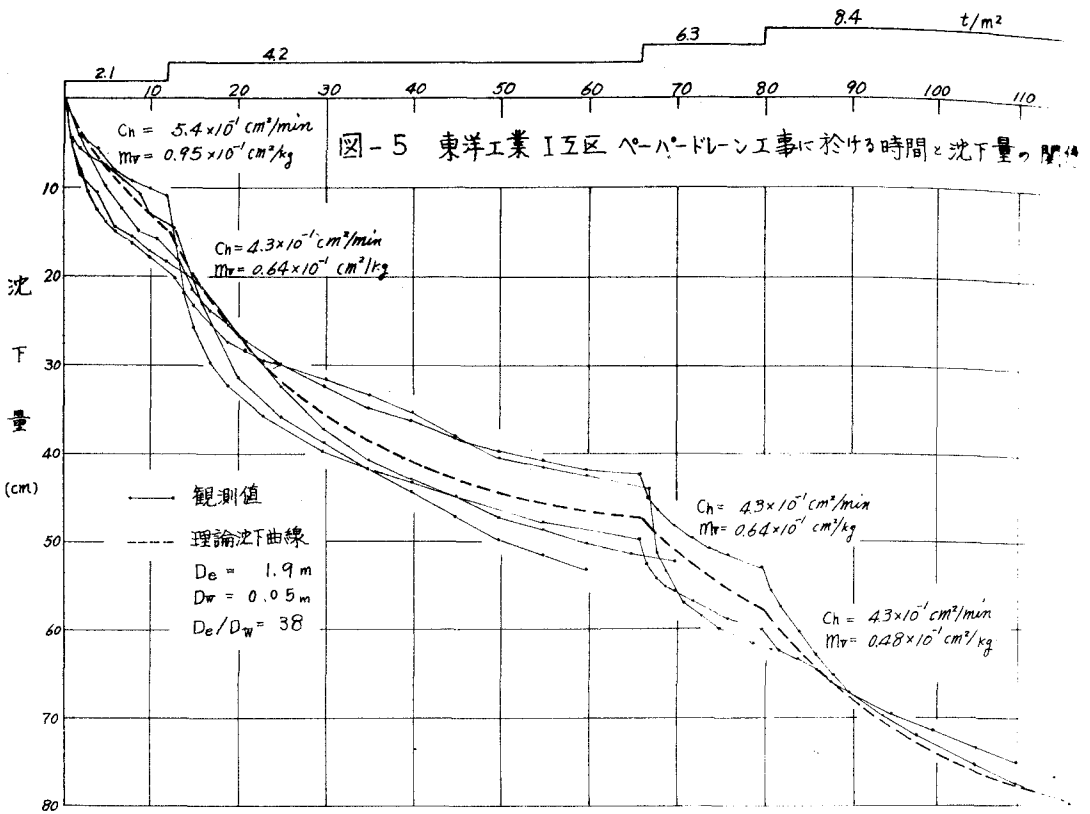 8.4 t/m²
6.3
4.2
2.1
10 20 30 40 50 60 70 80 90 100 110
Ch = 5.4×10⁻¹ cm²/min
mv = 0.95×10⁻¹ cm²/kg
図-5 東洋工業 I工区 ペーパードレーン工事に於ける時間と沈下量の関係
10
Ch = 4.3×10⁻¹ cm²/min
mv = 0.64×10⁻¹ cm²/kg
20
沈
下
量
(cm)
30
40
観測値
理論沈下曲線
De = 1.9 m
Dw = 0.05 m
De/Dw = 38
Ch = 4.3×10⁻¹ cm²/min
mv = 0.64×10⁻¹ cm²/kg
50
60
Ch = 4.3×10⁻¹ cm²/min
mv = 0.48×10⁻¹ cm²/kg
70
80